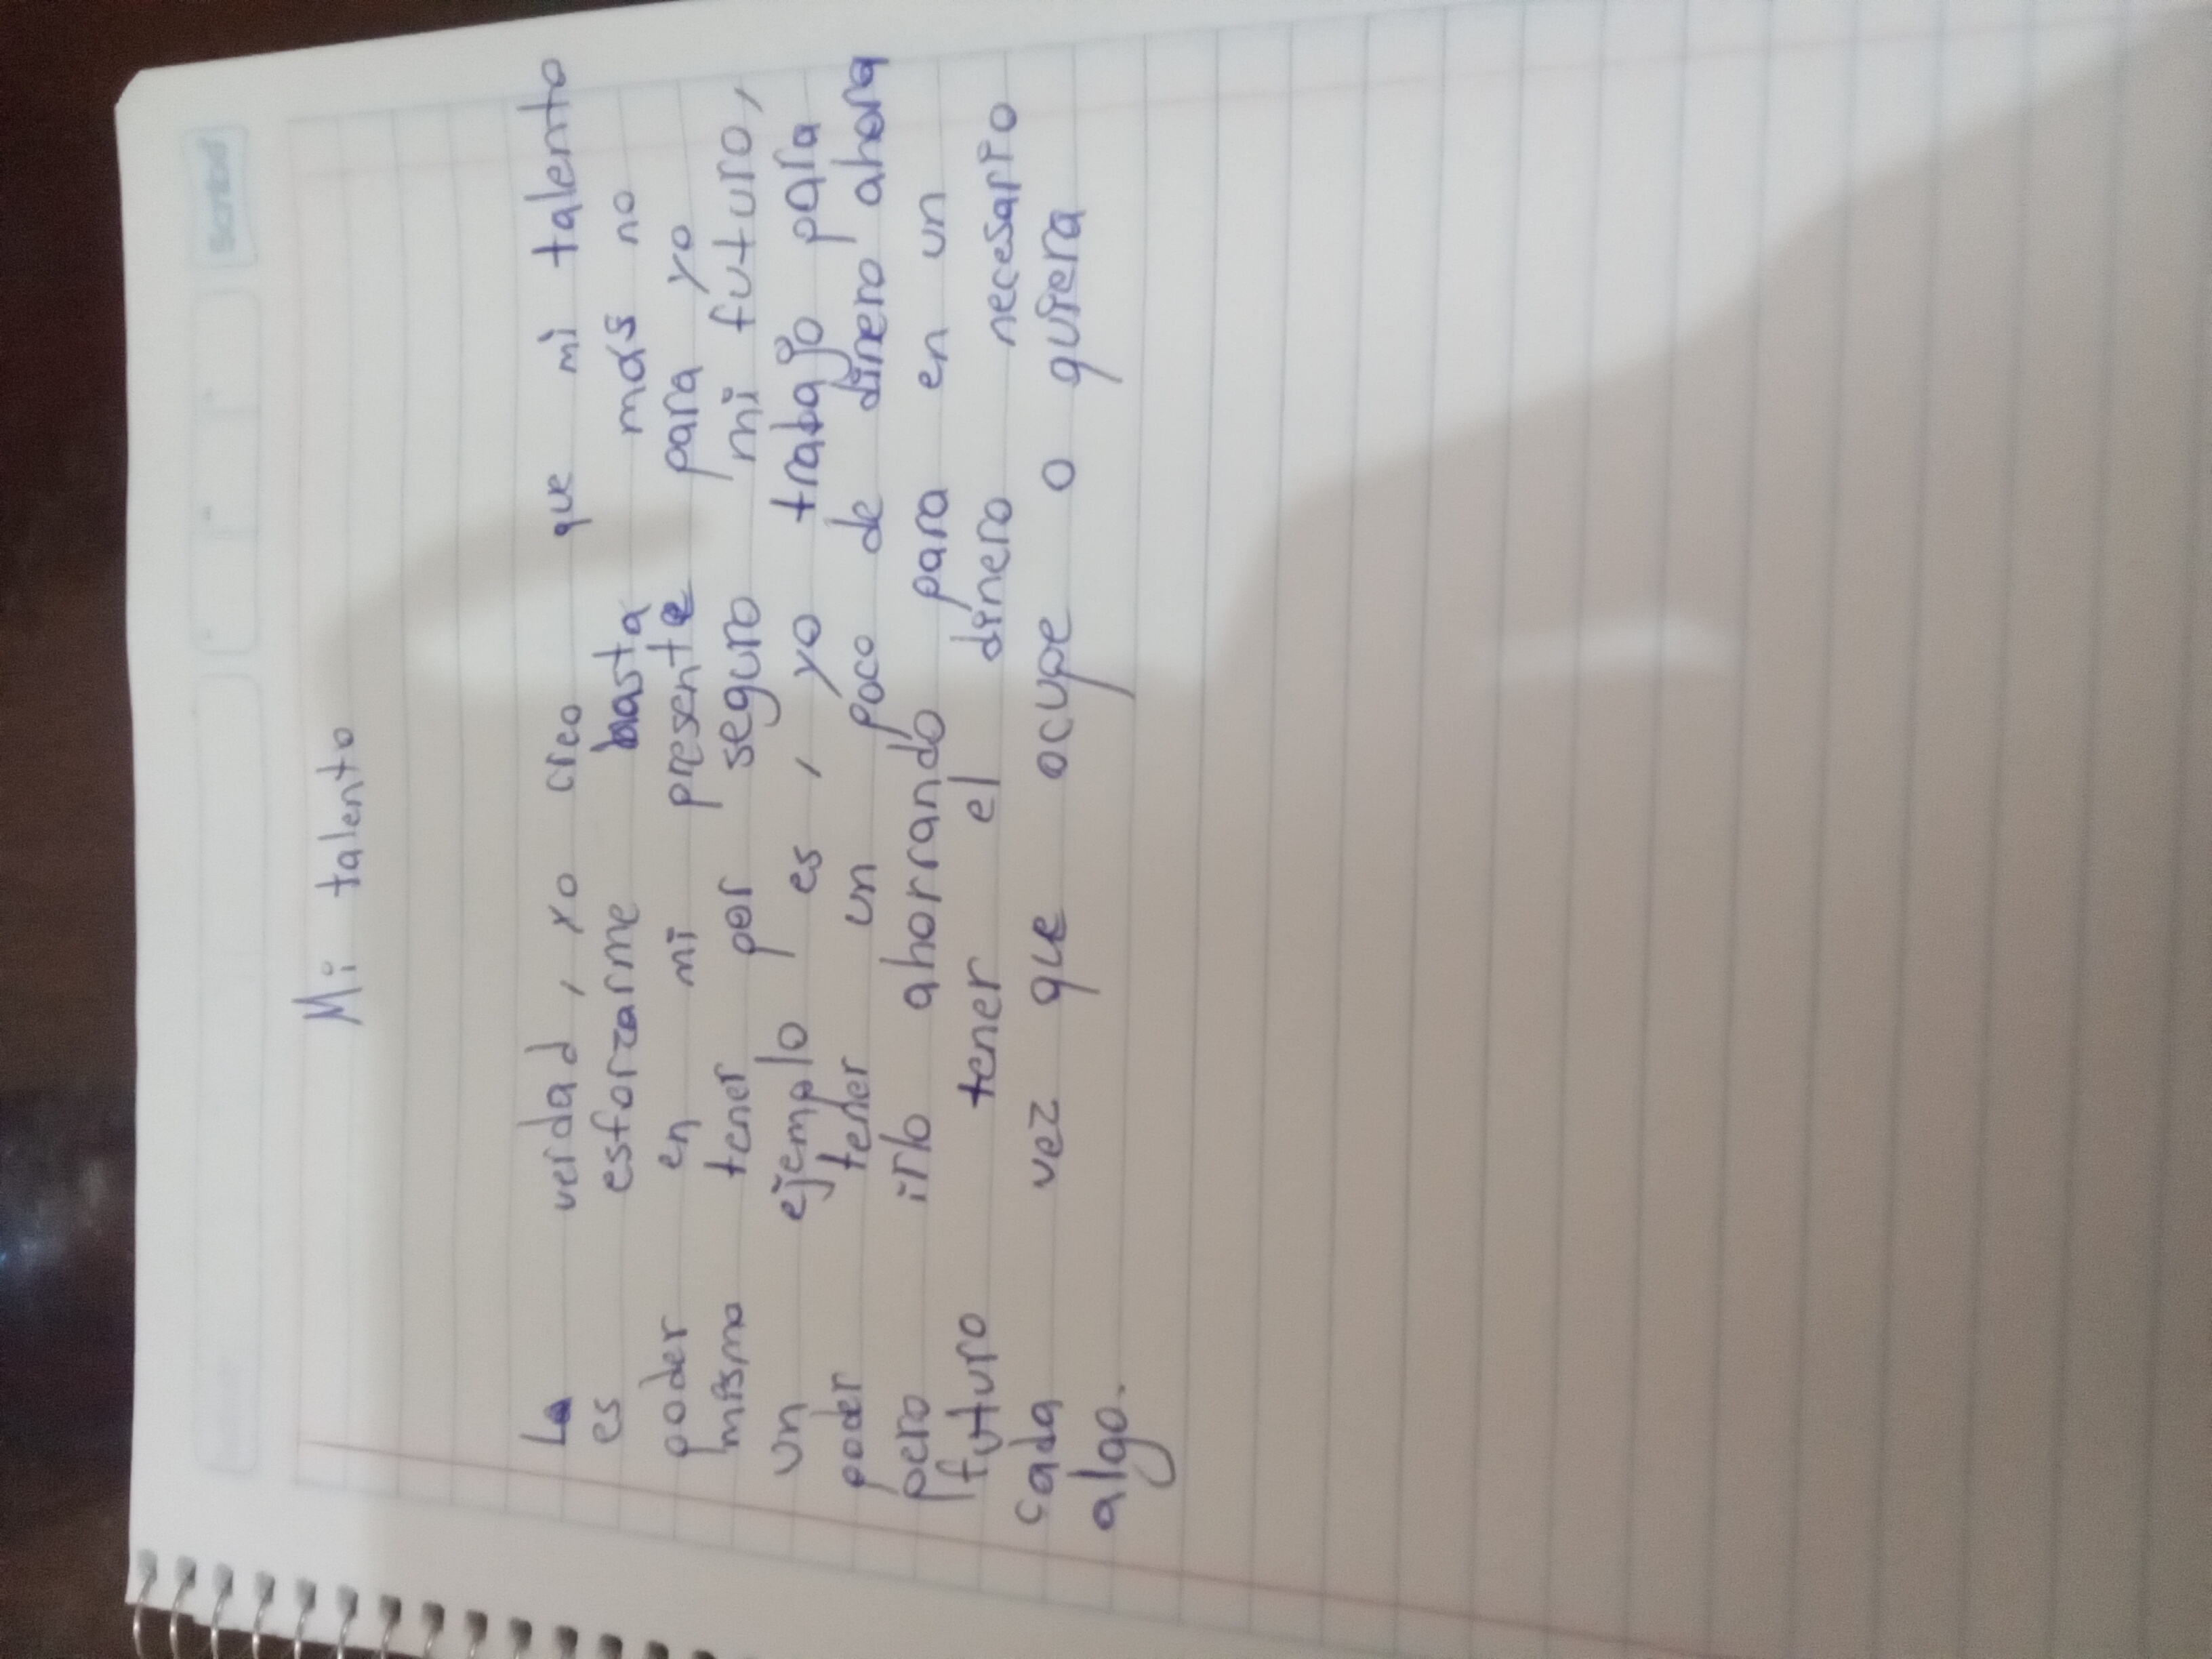 Scribe
Mi talento
La verdad, yo creo que mi talento
es esforzarme hasta más no
poder en mi presente para yo
mismo tener por seguro mi futuro,
un ejemplo es, yo trabajo para
poder tener un poco de dinero ahora
pero irlo ahorrando para en un
futuro tener el dinero necesario
cada vez que ocupe o quiera
algo.